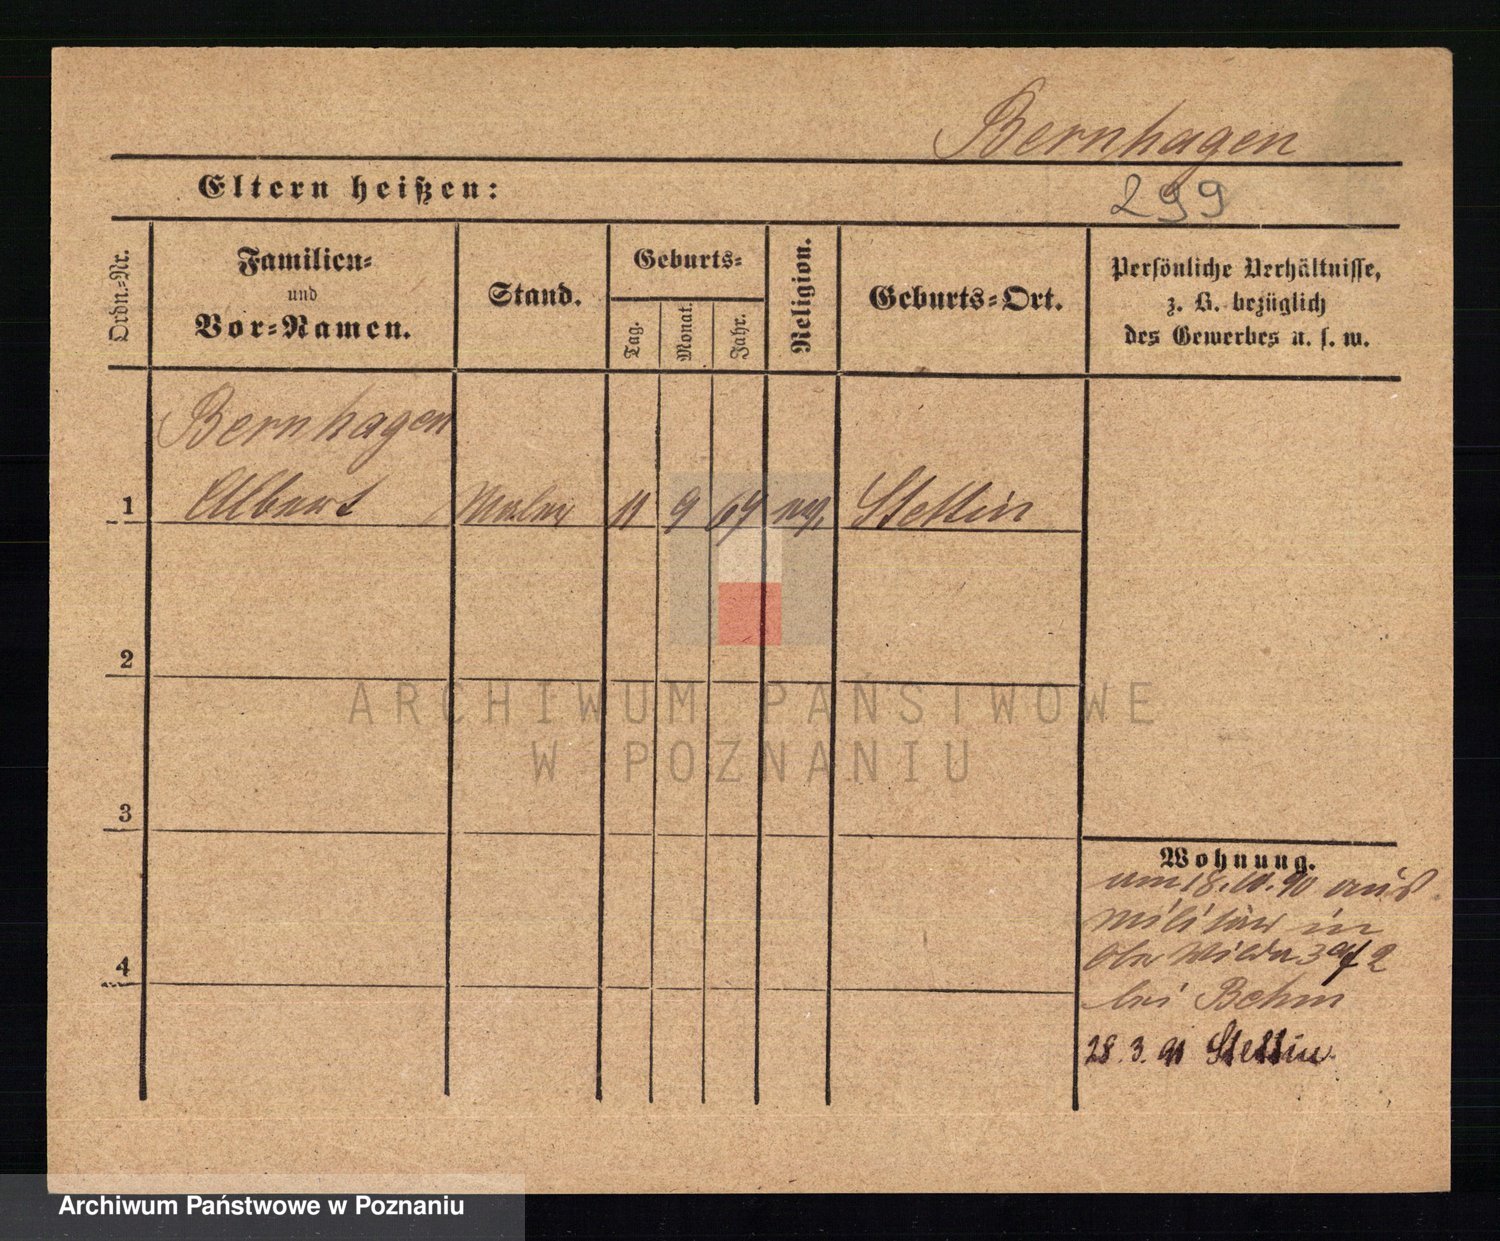 Bernhagen
Eltern heißen:
299
Ordn.-Nr.
Familien-
und
Vor-Namen.
Stand.
Geburts-
Tag.
Monat.
Jahr.
Religion.
Geburts-Ort.
Persönliche Verhältnisse,
z. B. bezüglich
des Gewerbes u. s. w.
Bernhagen
1 Albert Maler 11 9 67 ev. Stettin
2
3
4
Wohnung.
am 18.10.90 aus
Militär in
Ober Wilda 2
bei Behm
28.3.91 Stettin
ARCHIWUM PAŃSTWOWE
W POZNANIU
Archiwum Państwowe w Poznaniu